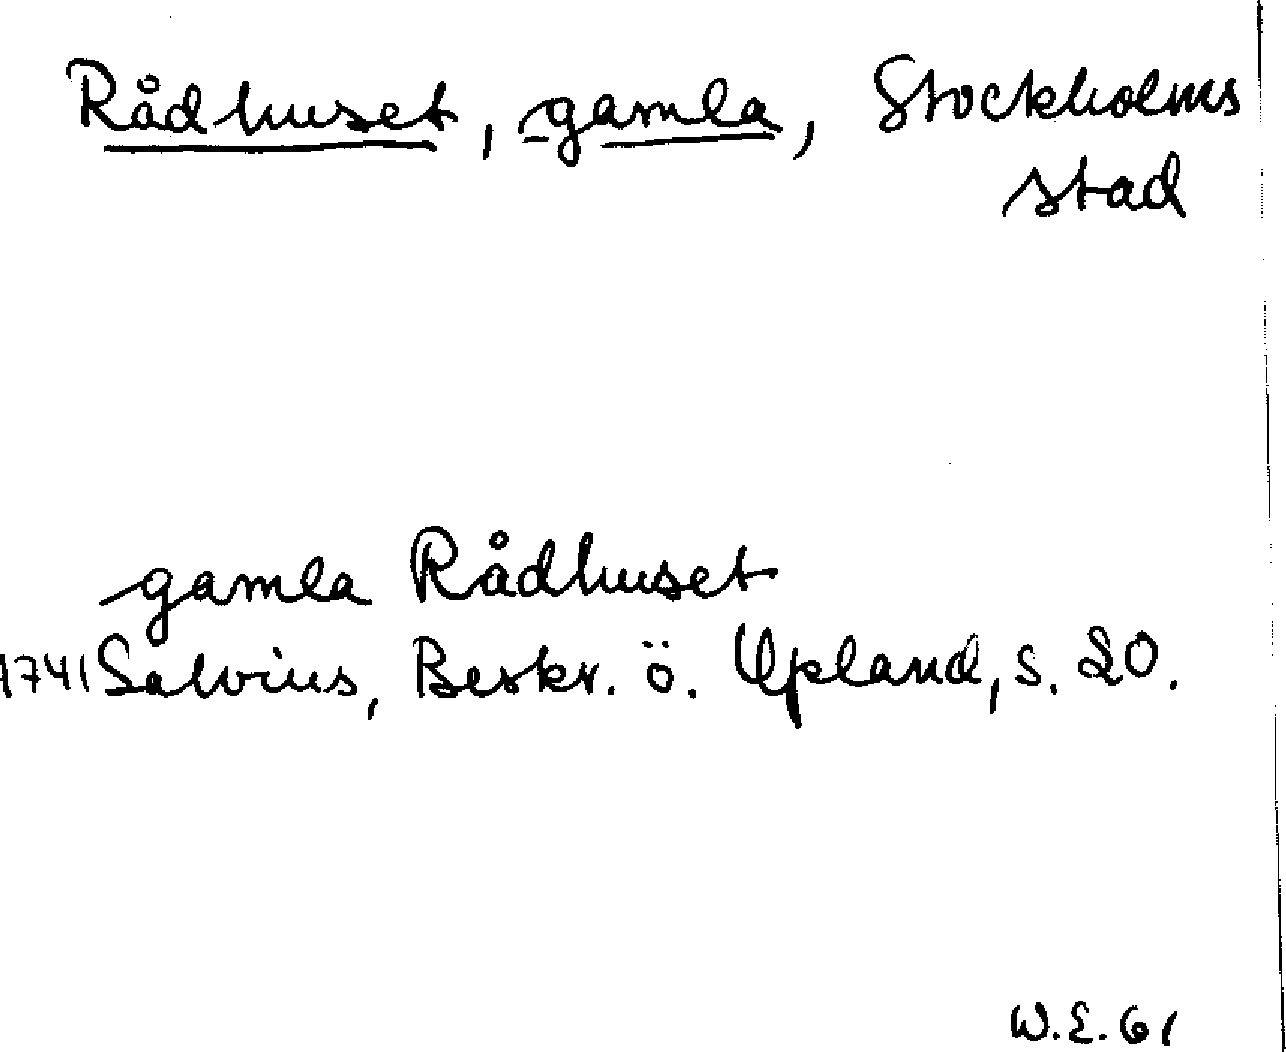 Rådhuset, gamla, Stockholms
stad
gamla Rådhuset
1741 Salvius, Beskr. ö. Upland, s. 20.
W.E. 61